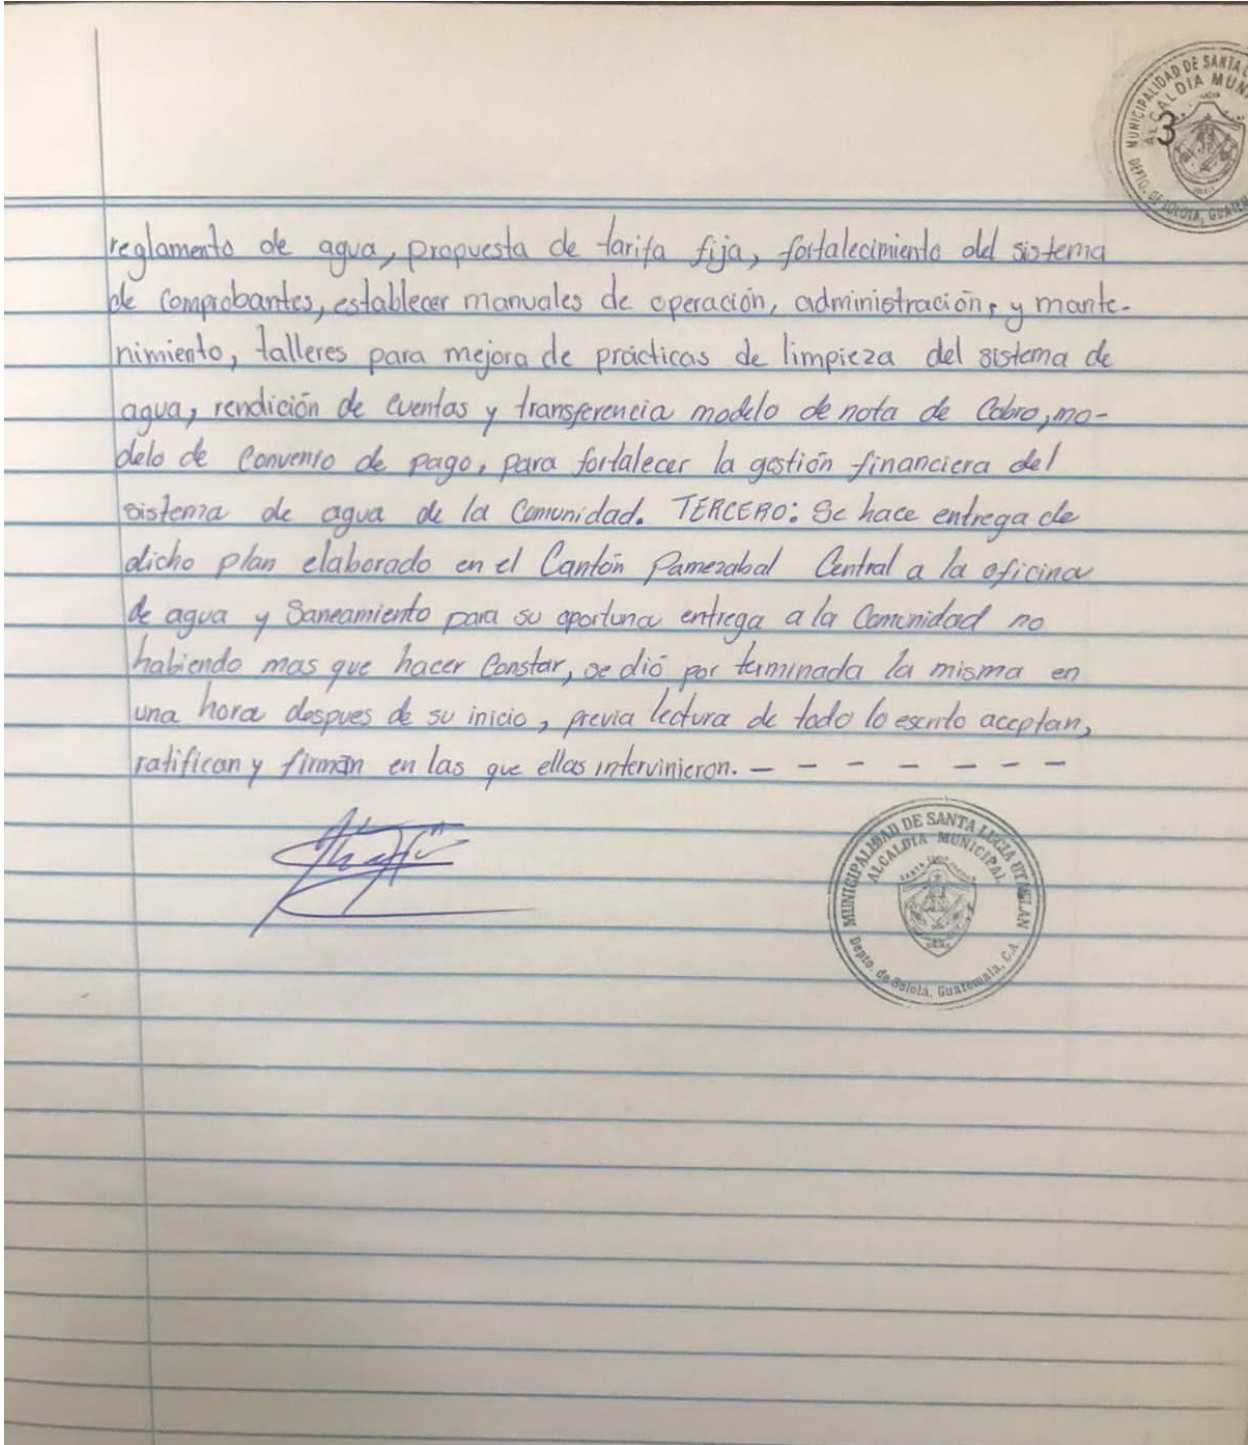 MUNICIPALIDAD DE SANTA
ALCALDIA MUN
3
DEPTO. DE SOLOLA, GUATEM
reglamento de agua, propuesta de tarifa fija, fortalecimiento del sistema
de comprobantes, establecer manuales de operación, administración, y mante-
nimiento, talleres para mejora de prácticas de limpieza del sistema de
agua, rendición de cuentas y transferencia modelo de nota de Cobro, mo-
delo de Convenio de pago, para fortalecer la gestión financiera del
sistema de agua de la Comunidad. TERCERO: Se hace entrega de
dicho plan elaborado en el Cantón Pamezabal Central a la oficina
de agua y Saneamiento para su oportuna entrega a la Comunidad no
habiendo mas que hacer Constar, se dió por terminada la misma en
una hora despues de su inicio, previa lectura de todo lo escrito aceptan,
ratifican y firman en las que ellas intervinieron. - - - - - - -
MUNICIPALIDAD DE SANTA LUCIA UTATLAN
ALCALDIA MUNICIPAL
Depto. de Sololá, Guatemala, C.A.